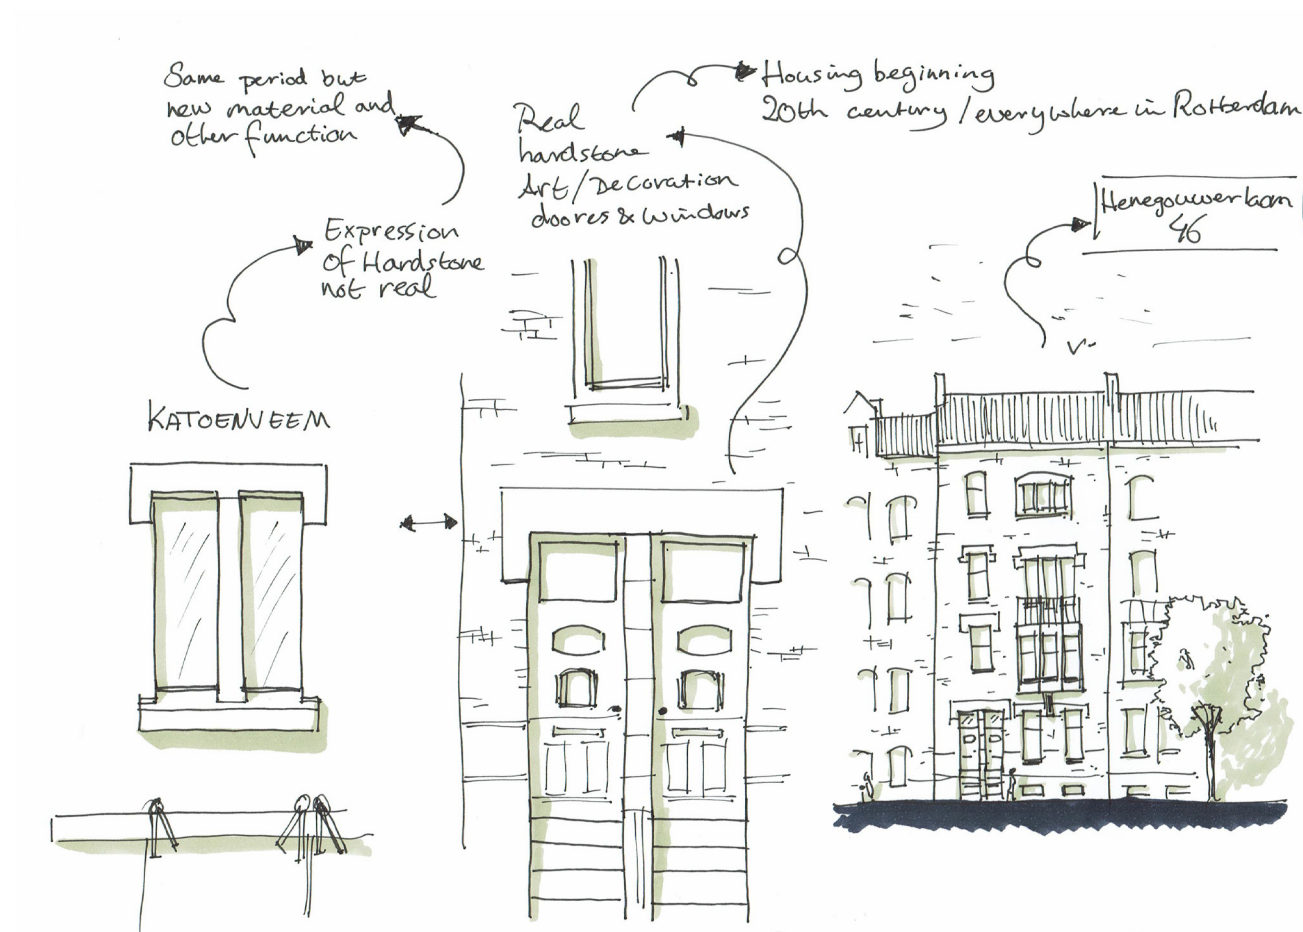 Same period but
new material and
other function
Expression
of Hardstone
not real
KATOENVEEM
Real
hardstone
Art/Decoration
doores & windows
Housing beginning
20th century/everywhere in Rotterdam
Henegouwerlaan
46